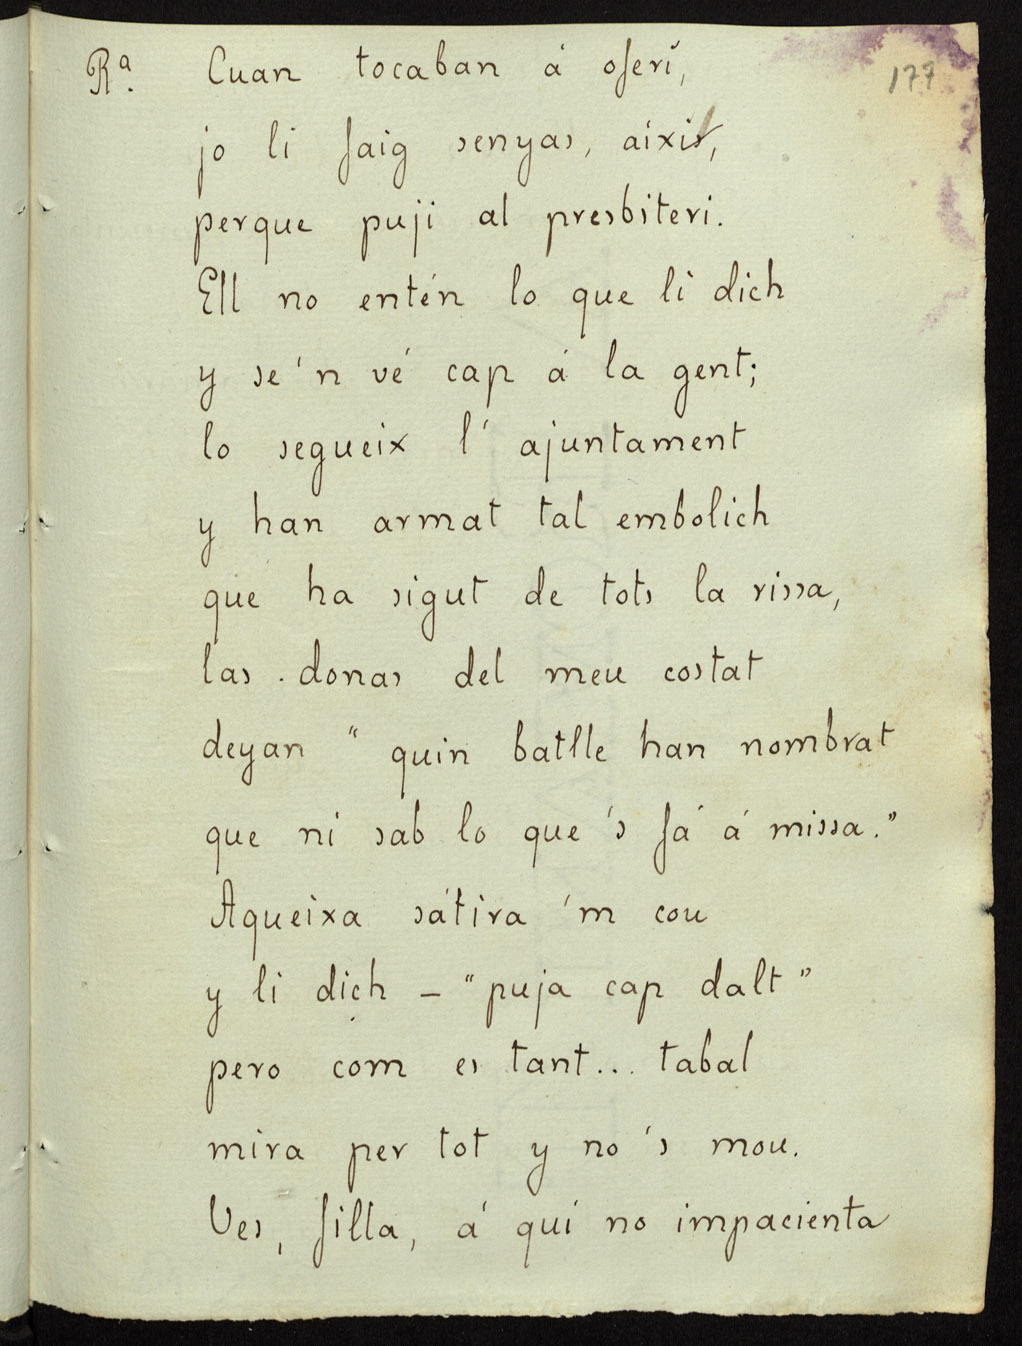 177
Rª. Cuan tocaban á oferí,
jo li faig senyas, aíxis,
perque puji al presbiteri.
Ell no entén lo que li dich
y se 'n vé cap á la gent;
lo segueix l' ajuntament
y han armat tal embolich
que ha sigut de tots la rissa,
las donas del meu costat
deyan “ quin batlle han nombrat
que ni sab lo que 's fá á missa.”
Aqueixa sátira 'm cou
y li dich – “puja cap dalt”
pero com es tant... tabal
mira per tot y no 's mou.
Ves, filla, á qui no impacienta